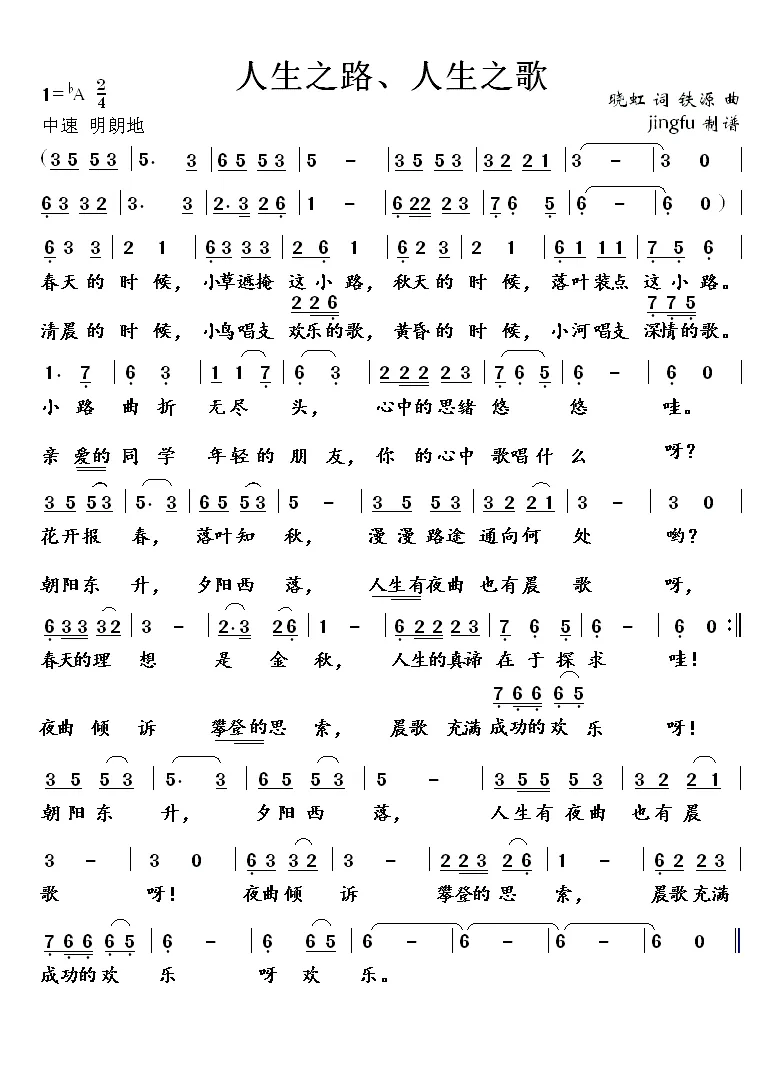 人生之路、人生之歌
1=♭A 2/4
晓虹 词 铁源 曲
中速 明朗地
jingfu 制谱
(3 5 5 3 | 5· 3 | 6 5 5 3 | 5 - | 3 5 5 3 | 3 2 2 1 | 3 - | 3 0 |
6 3 3 2 | 3· 3 | 2·3 2 6 | 1 - | 6 22 2 3 | 7 6 5 | 6 - | 6 0 ) |
6 3 3 | 2 1 | 6 3 3 3 | 2 6 1 | 6 2 3 | 2 1 | 6 1 1 1 | 7 5 6 |
春天的时候，小草遮掩这小路，秋天的时候，落叶装点这小路。
2 2 6 7 7 5
清晨的时候，小鸟唱支欢乐的歌，黄昏的时候，小河唱支深情的歌。
1· 7 | 6 3 | 1 1 7 | 6 3 | 2 2 2 2 3 | 7 6 5 | 6 - | 6 0 |
小路曲折无尽头，心中的思绪悠悠哇。
亲爱的同学年轻的朋友，你的心中歌唱什么呀？
3 5 5 3 | 5· 3 | 6 5 5 3 | 5 - | 3 5 5 3 | 3 2 2 1 | 3 - | 3 0 |
花开报春，落叶知秋，漫漫路途通向何处哟？
朝阳东升，夕阳西落，人生有夜曲也有晨歌呀，
6 3 3 3 2 | 3 - | 2·3 2 6 | 1 - | 6 2 2 2 3 | 7 6 5 | 6 - | 6 0 :‖
春天的理想是金秋，人生的真谛在于探求哇！
7 6 6 6 5
夜曲倾诉攀登的思索，晨歌充满成功的欢乐呀！
3 5 5 3 | 5· 3 | 6 5 5 3 | 5 - | 3 5 5 3 | 3 2 2 1 |
朝阳东升，夕阳西落，人生有夜曲也有晨
3 - | 3 0 | 6 3 3 2 | 3 - | 2 2 3 2 6 | 1 - | 6 2 2 3 |
歌呀！夜曲倾诉攀登的思索，晨歌充满
7 6 6 6 5 | 6 - | 6 6 5 | 6 - | 6 - | 6 - | 6 0 ‖
成功的欢乐呀欢乐。